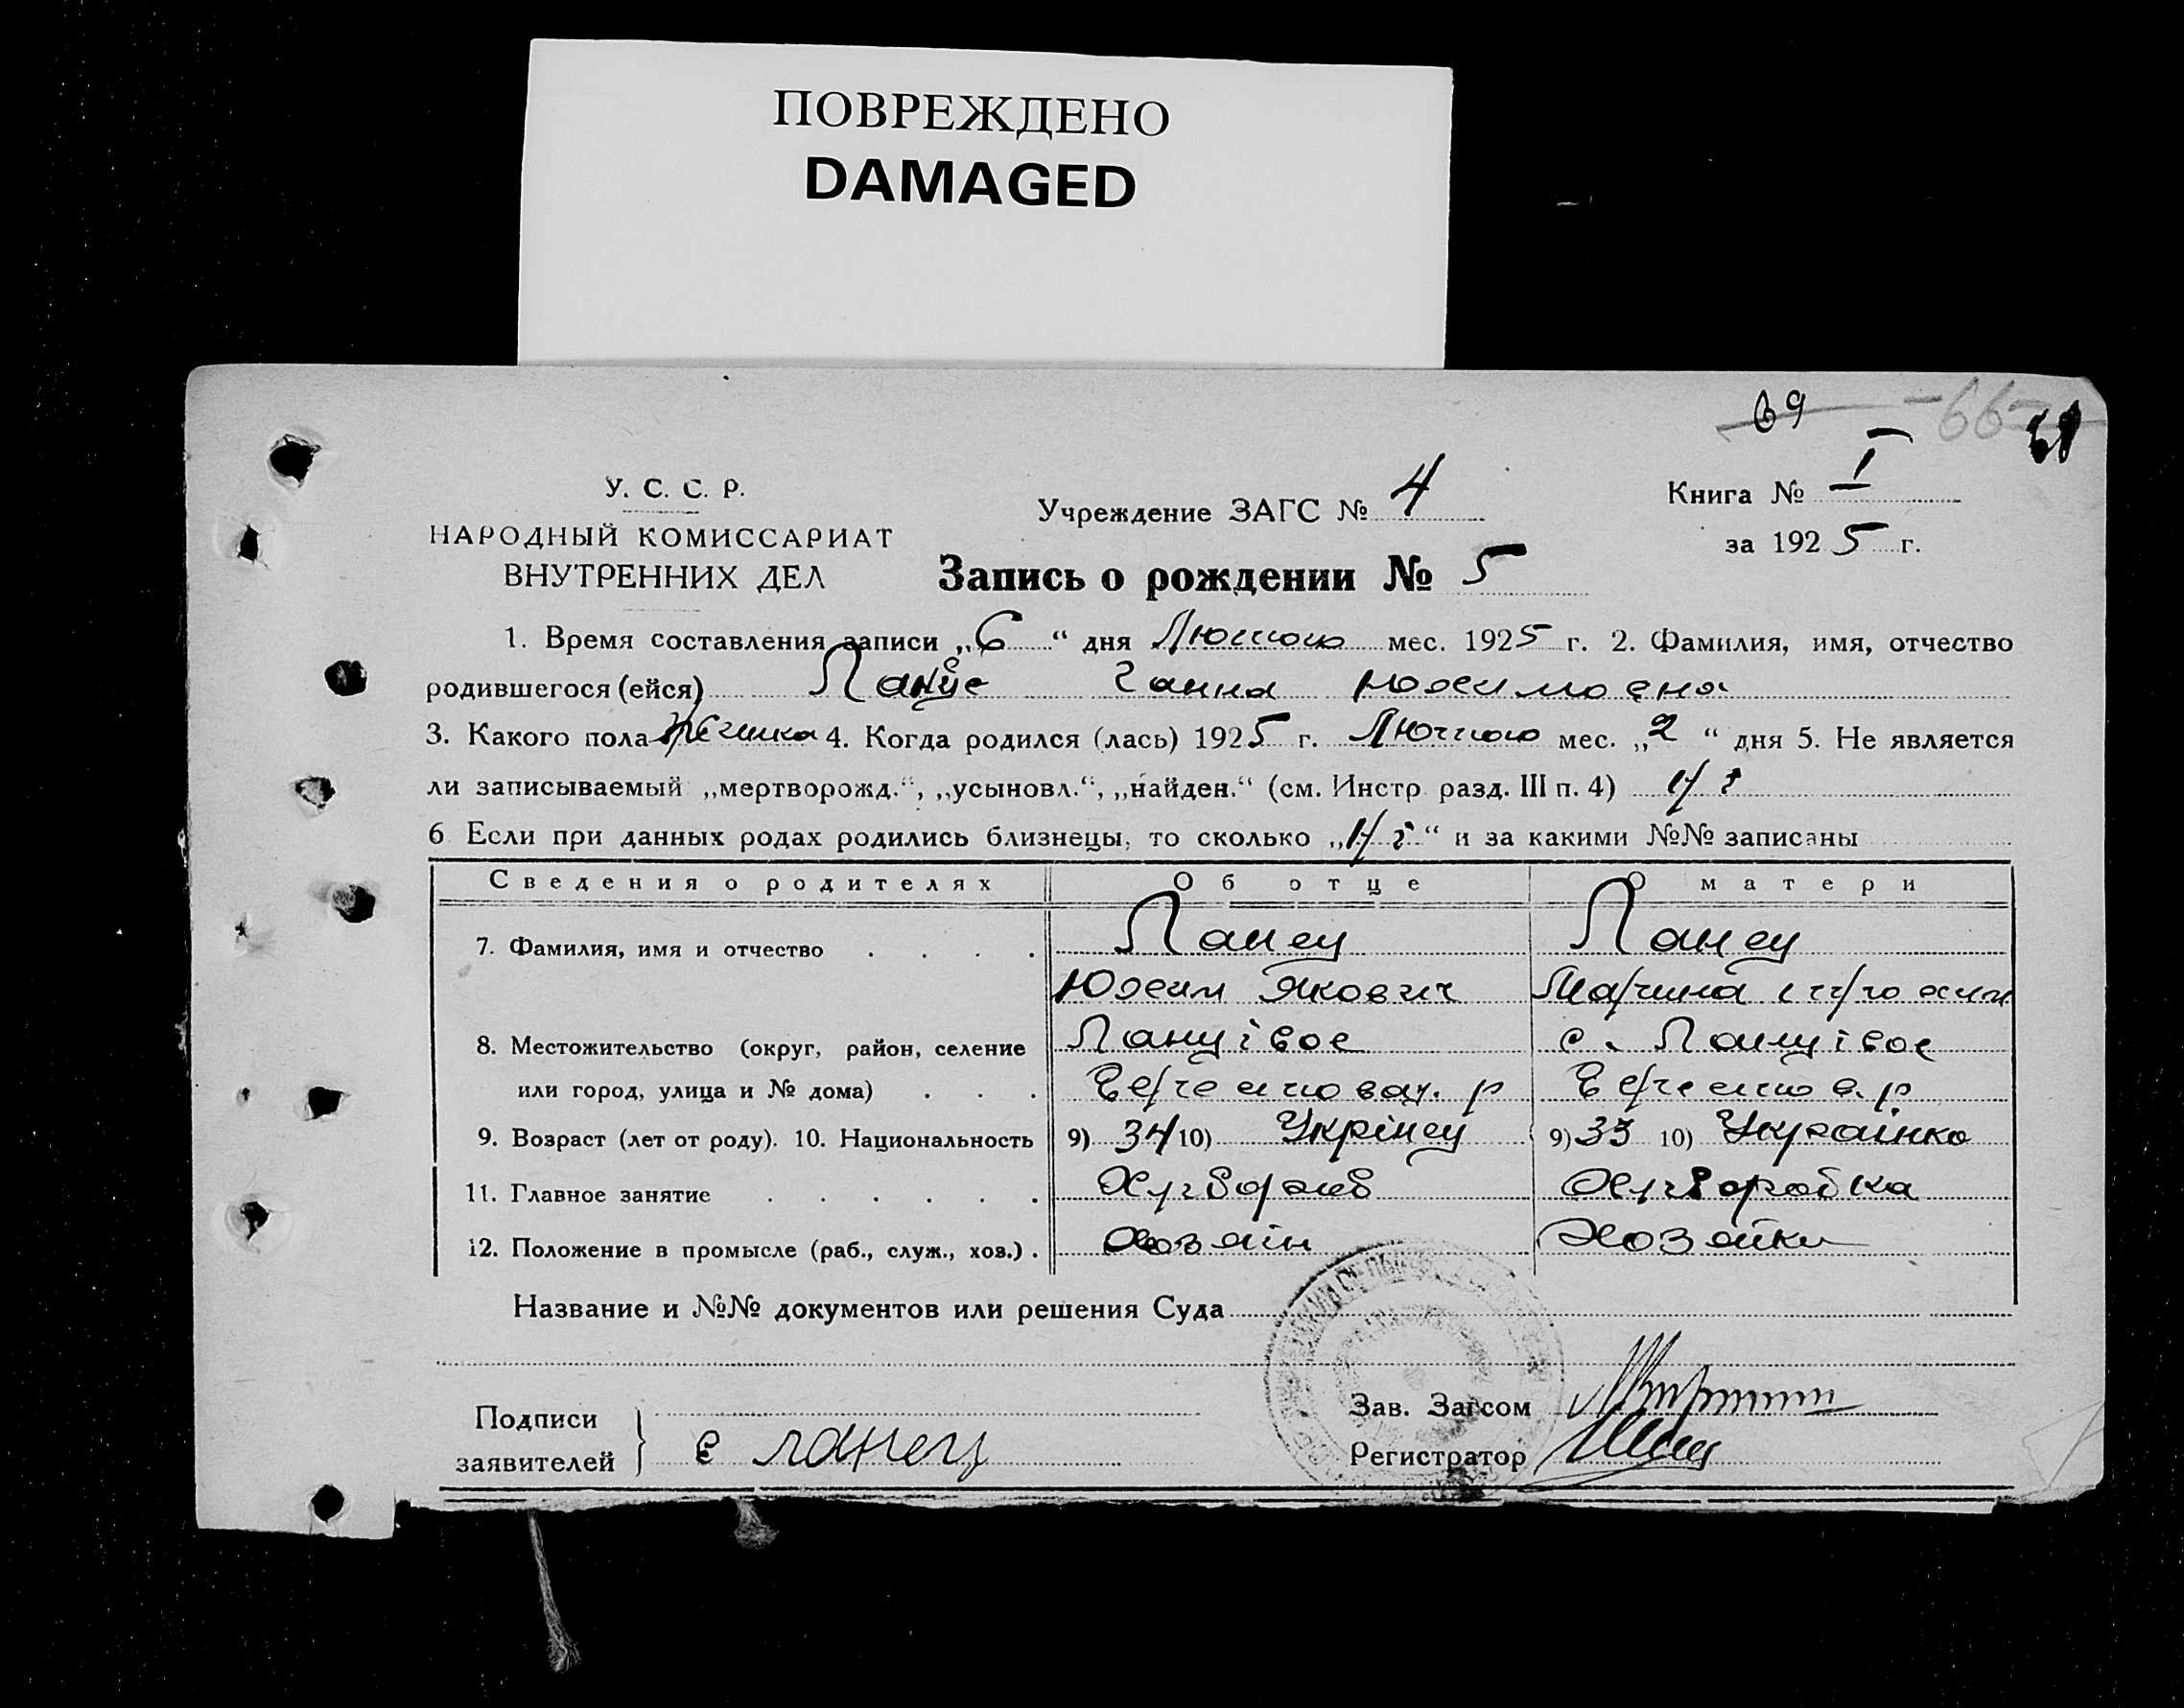 ПОВРЕЖДЕНО
DAMAGED
69 -66-
У. С. С. Р.
НАРОДНЫЙ КОМИССАРИАТ
ВНУТРЕННИХ ДЕЛ
Учреждение ЗАГС № 4
Книга № I
за 1925 г.
Запись о рождении № 5
1. Время составления записи „6“ дня Лютого мес. 1925 г. 2. Фамилия, имя, отчество
родившегося (ейся) Ганна Юхимовна
3. Какого пола жіноча 4. Когда родился (лась) 1925 г. Лютого мес. „2“ дня 5. Не является
ли записываемый „мертворожд.“, „усыновл.“, „найден.“ (см. Инстр. разд. III п. 4) Ні
6 Если при данных родах родились близнецы, то сколько „Ні“ и за какими №№ записаны
Сведения о родителях Об отце О матери
7. Фамилия, имя и отчество . . . . Ланец Ланец
Юхим Якович
8. Местожительство (округ, район, селение Ланцівое с. Ланцівое
или город, улица и № дома) . . . р р
9. Возраст (лет от роду). 10. Национальность 9) 34 10) Укрінец 9) 33 10) Украінка
11. Главное занятие . . . . . . Хліборобка
12. Положение в промысле (раб., служ., хоз.) . Хозяін Хозяйка
Название и №№ документов или решения Суда
Подписи
заявителей } Є Ланец
Зав. Загсом
Регистратор